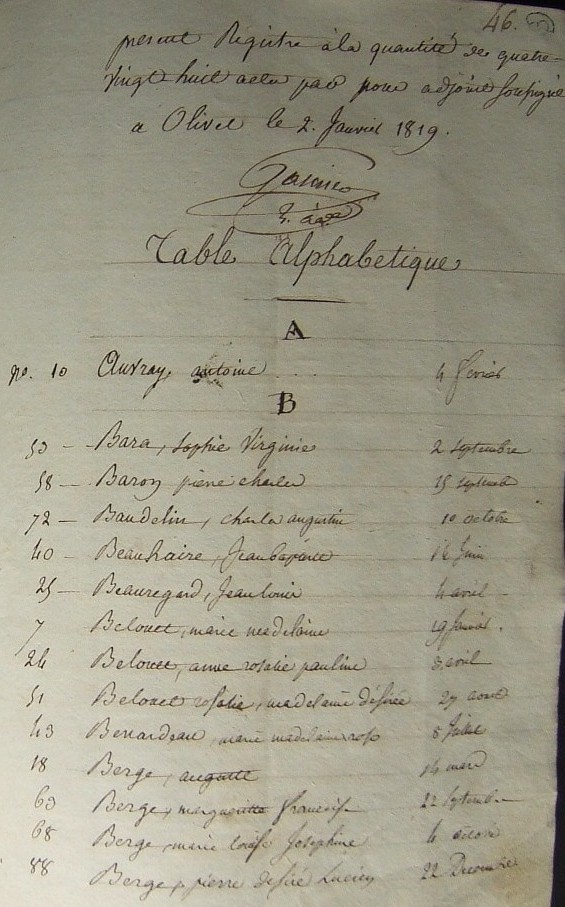 46.
present Registre à la quantité de quatre-
vingt huit actes par nous adjoint soussigné
a Olivet le 2. Janvier 1819.
Table Alphabetique
A
no. 10 Auvray, antoine .... 4 fevrier
B
50 — Bara, Sophie Virginie 2 septembre
58 — Baron pierre charles 15 septembre
72 — Baudelin, charles augustin 10 octobre
40 — Beauhaire, Jean baptiste Juin
25 — Beauregard, Jean louis 4 avril —
7 Belouet, marie madelaine 19 Janvier.
24 Belouet, anne rosalie pauline 3 avril
51 Belouet rosalie, madelaine désirée 27 aout
43 Benardeau, marie madelaine rose 8 Juillet
18 Berge, auguste 14 mars
60 Berge, margueritte francoise 22 septembre
68 Berge, marie louise Josephine 4 octobre
88 Berge, pierre desiré Lucien 22 Decembre